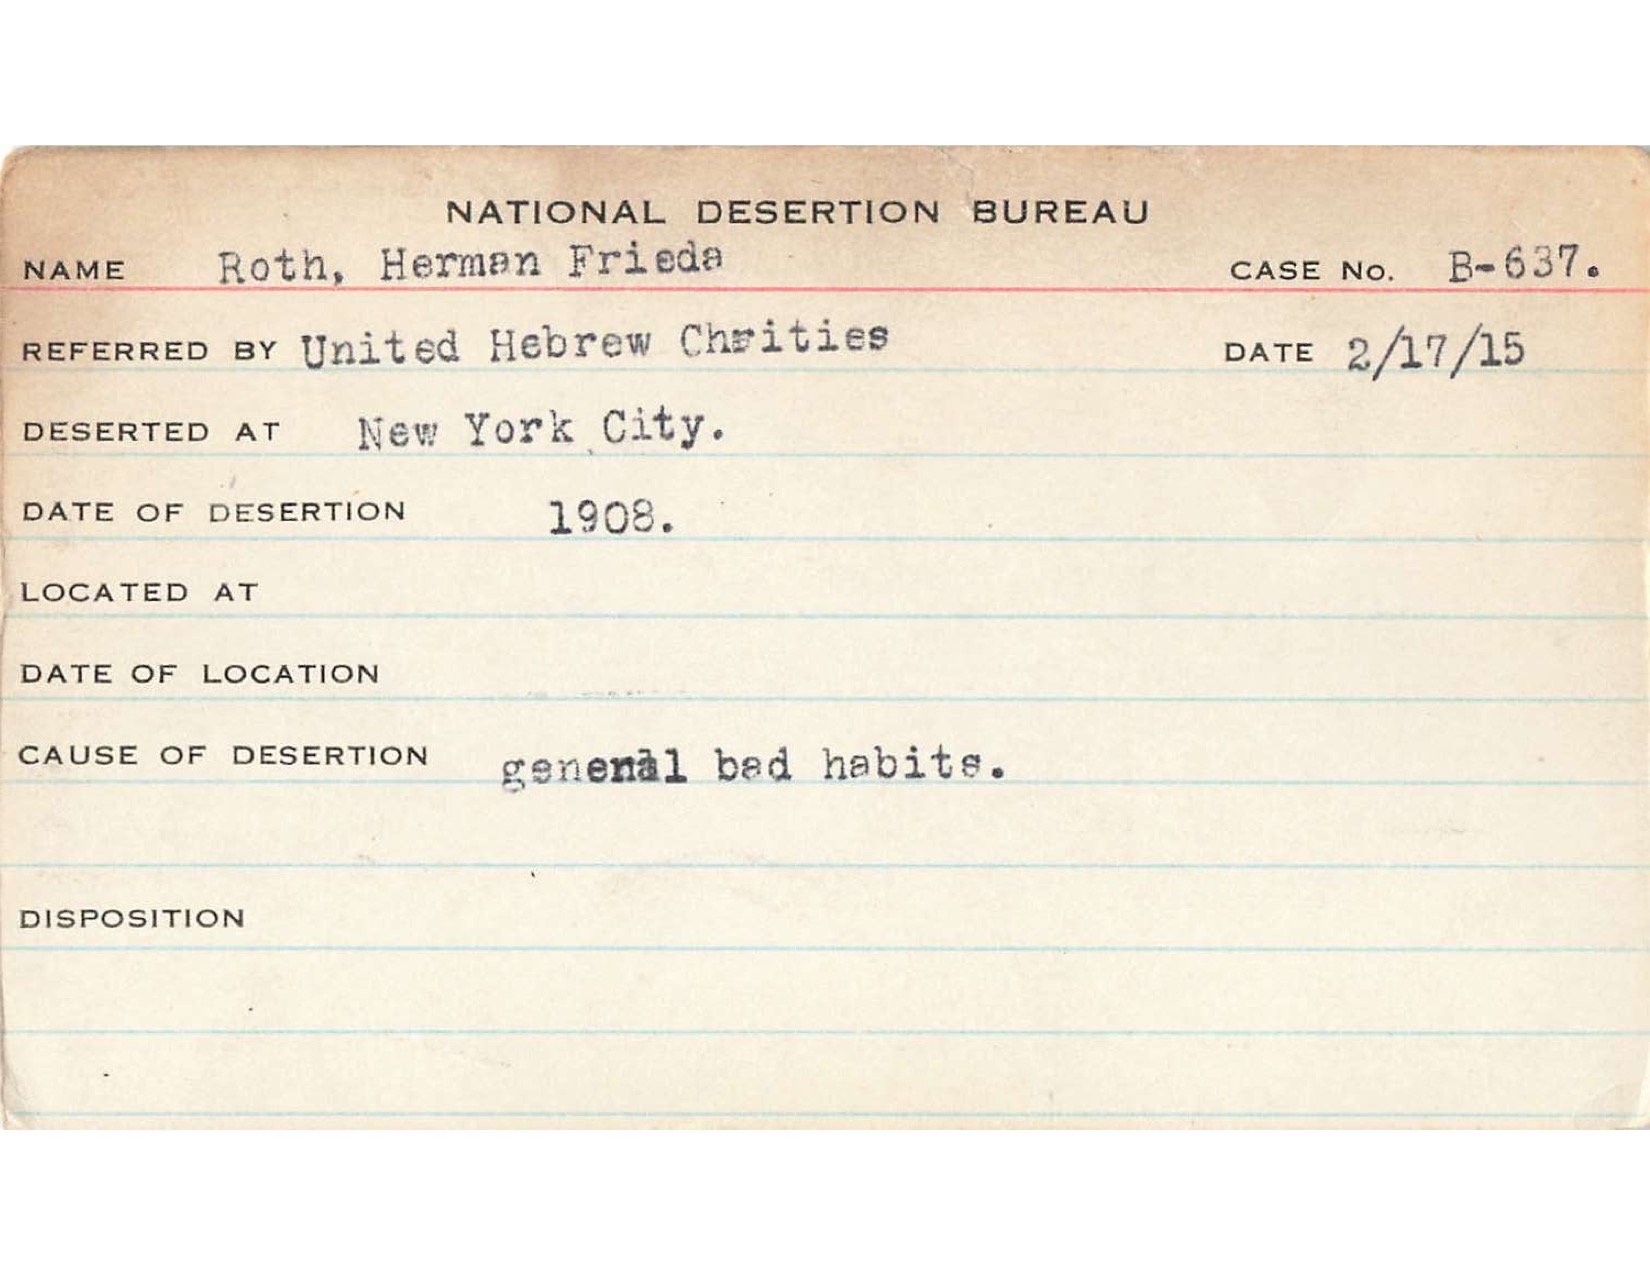 NATIONAL DESERTION BUREAU
NAME Roth, Herman Frieda CASE No. B-637.
REFERRED BY United Hebrew Chrities DATE 2/17/15
DESERTED AT New York City.
DATE OF DESERTION 1908.
LOCATED AT
DATE OF LOCATION
CAUSE OF DESERTION general bad habits.
DISPOSITION